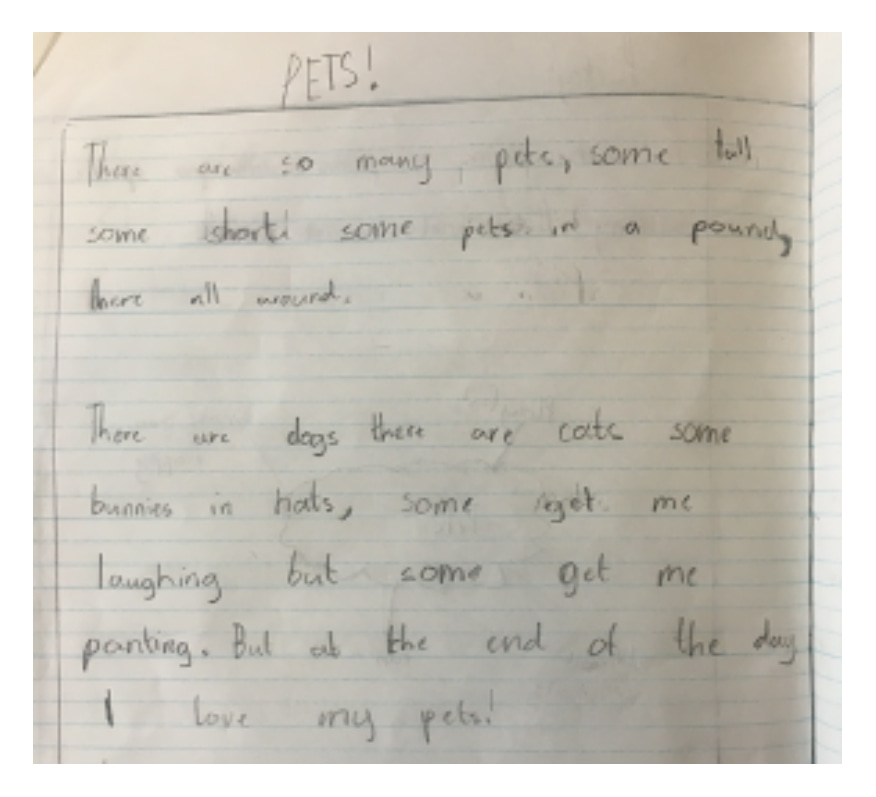 PETS!
There are so many pets, some tall
some short some pets in a pound,
there all around.
There are dogs there are cats some
bunnies in hats, some get me
laughing but some get me
panting. But at the end of the day
I love my pets!